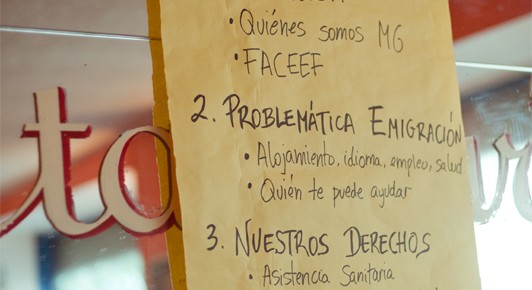 • Quiénes somos MG
• FACEEF
2. PROBLEMÁTICA EMIGRACIÓN
• Alojamiento, idioma, empleo, salud
• Quién te puede ayudar
3. NUESTROS DERECHOS
• Asistencia Sanitaria
to